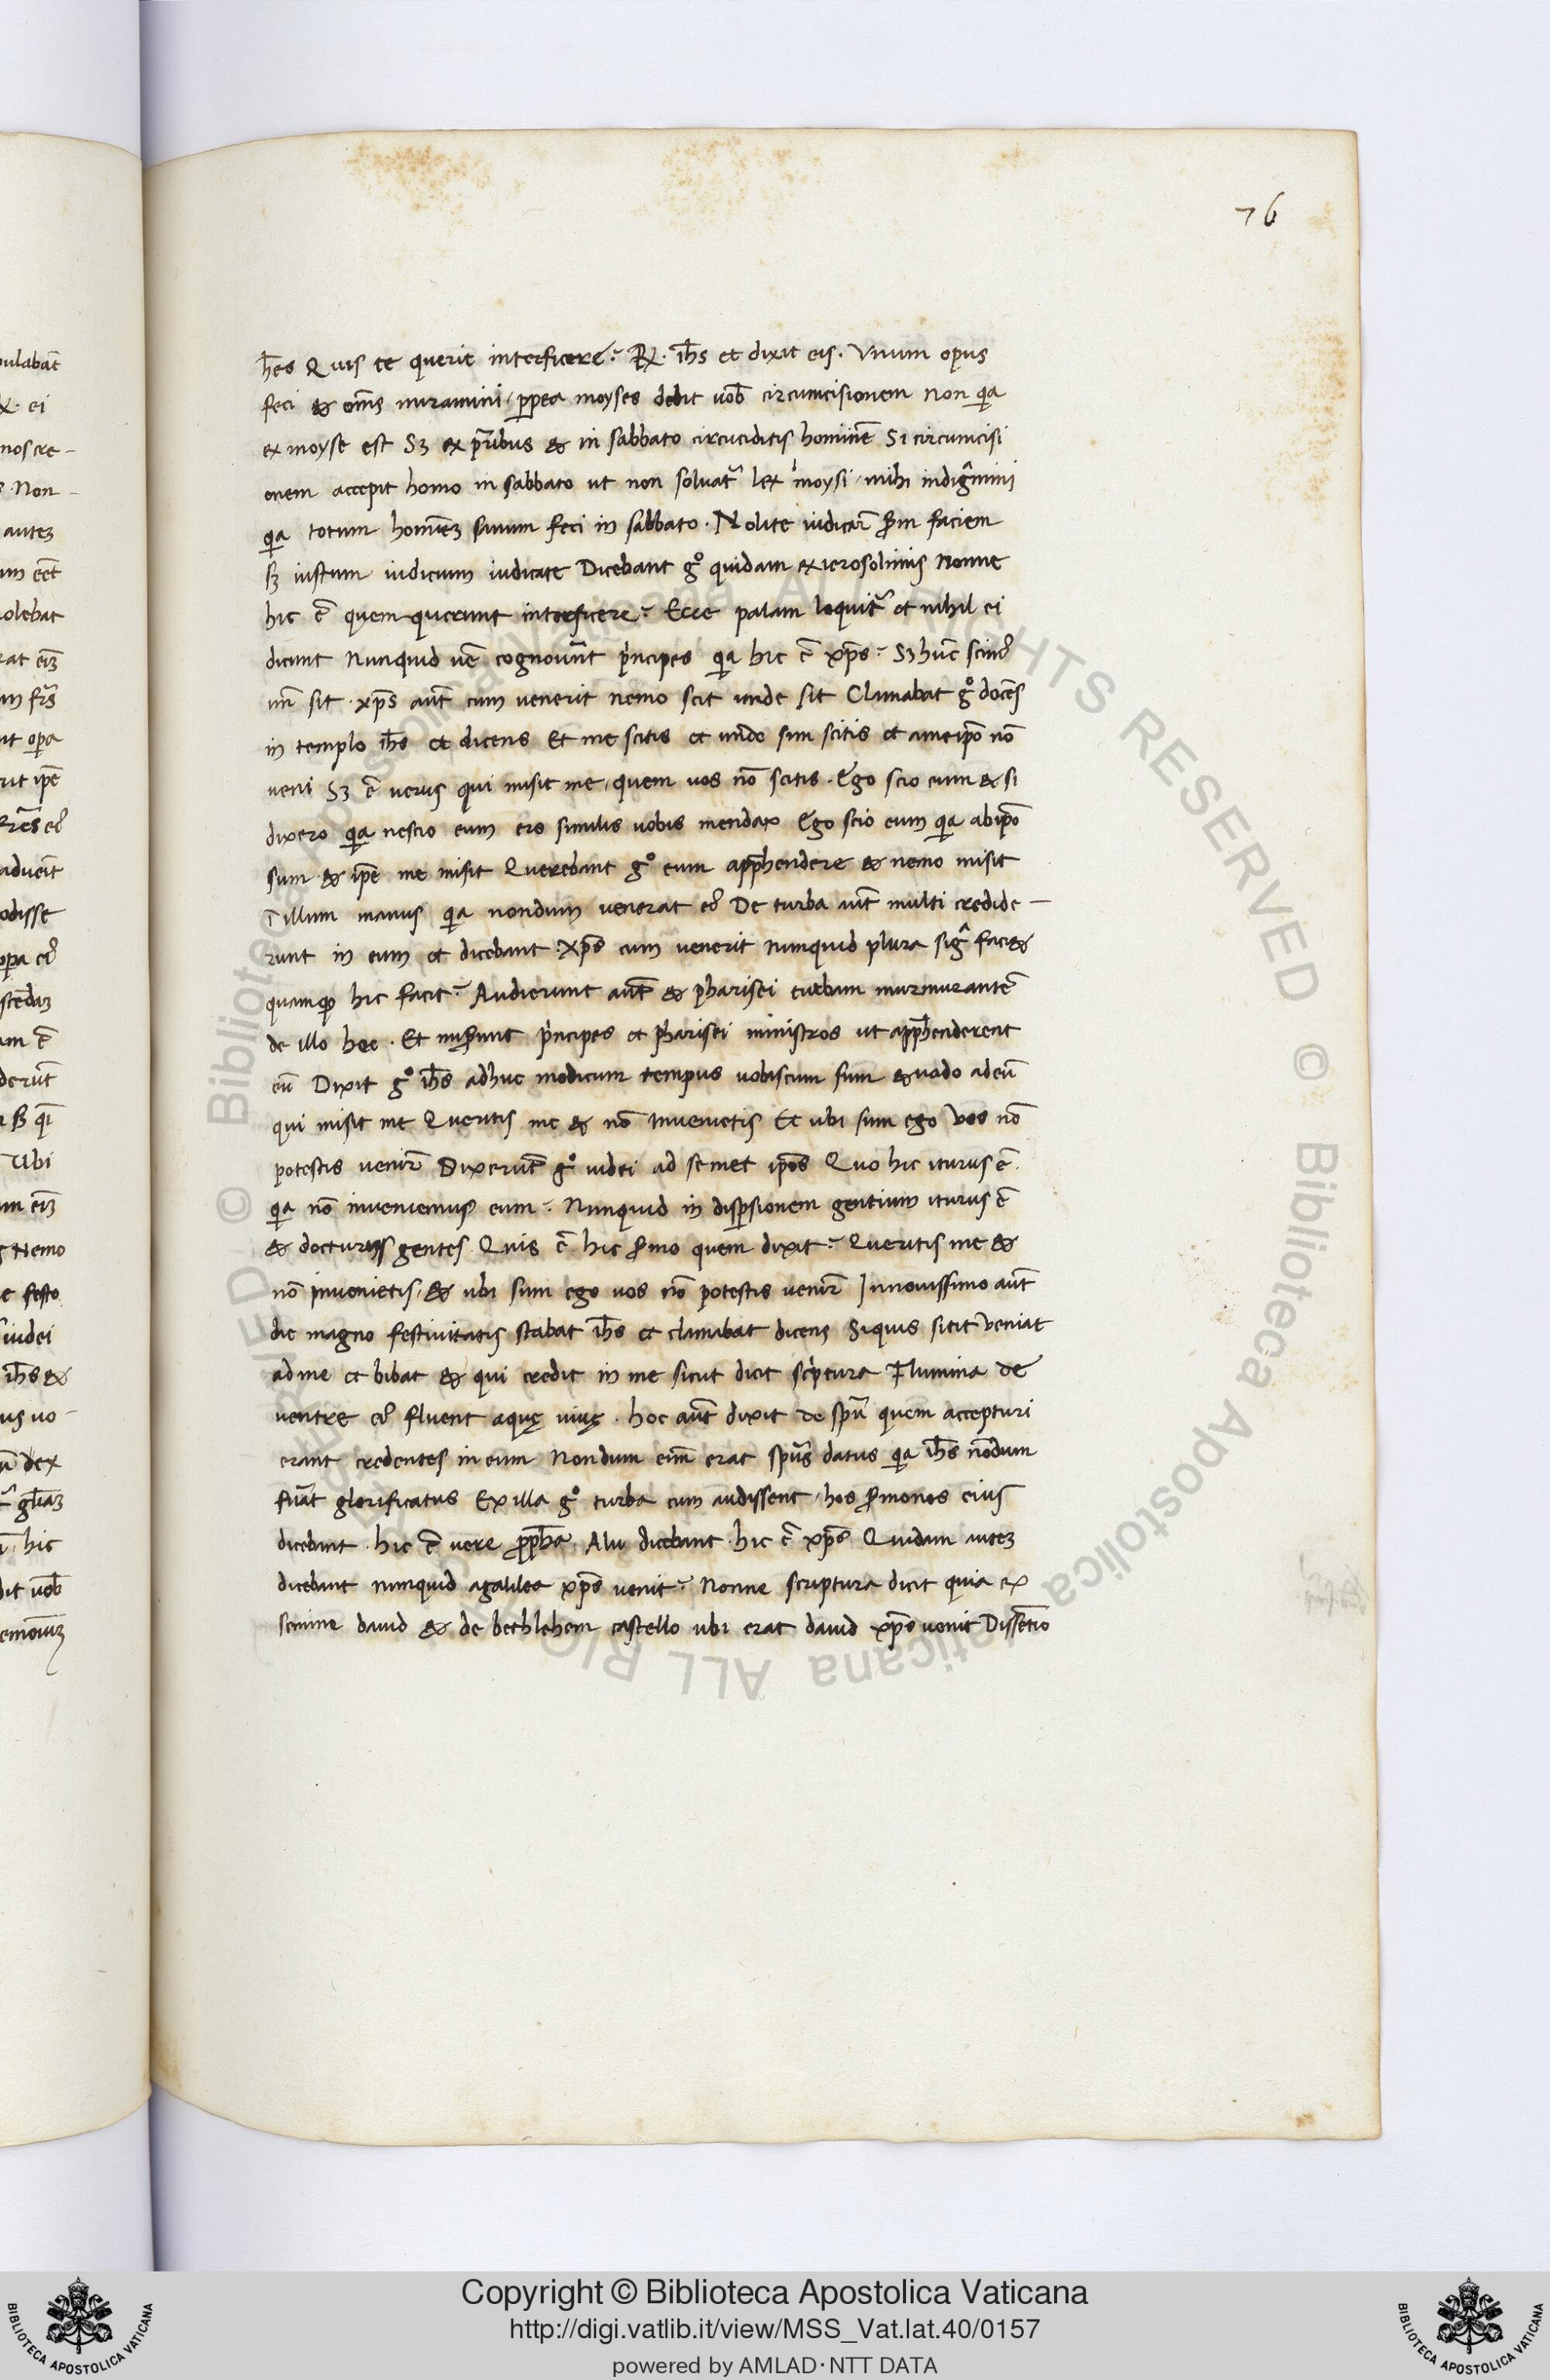 76
h̅es Quis te querit interficere? R̸. ih̅s et dixit eis. Vnum opus
feci & om̅s miramini, ꝓpea moyses dedit uob̅ circumcisionem non q̅a
ex moyse est Sꝫ ex p̅ribus & in sabbato circu̅ciditis homine̅ Si circumcisi
onem accepit homo in sabbato ut non soluat᷑ lex moysi, mihi indig̅mini
q̅a totum homine̅ꝫ sanum feci in sabbato. Nolite iudicar̅ s̅m faciem
sꝫ iustum iudicium iudicate Dicebant gͦ quidam ex ierosolimis Nonne
hic e̅ quem querunt interficere? Ecce palam loquit᷑ et nihil ei
dicunt Nunquid ue̅ cognoueru̅t pͥncipes q̅a hic e̅ xp̅s? Sꝫ hu̅c scimꝰ
un̅ sit. xp̅s aut̅ cum venerit nemo scit unde sit Clamabat gͦ doce̅s
in templo ih̅s et dicens Et me scitis et unde sim scitis et a meip̅o no̅
veni Sꝫ e̅ verus qui misit me, quem uos no̅ scitis. Ego scio eum & si
dixero q̅a nescio eum ero similis uobis mendax Ego scio eum q̅a ab ip̅o
sum & ip̅e me misit Querebant gͦ eum app̅hendere & nemo misit
i̅ illum manus q̅a nondum venerat eꝰ De turba aut̅ multi credide-
runt in eum et dicebant. Xp̅s cum venerit nunquid plura sig̅ faci&
quamꝙ hic facit? Audierunt aut̅ & pharisei turbam murmurante̅
de illo hec. Et mis̅unt pͥncipes et pharisei ministros ut app̅henderent
eu̅ Dixit gͦ ih̅s adhuc modicum tempus uobiscum sum & uado ad eu̅
qui misit me Queritis me & no̅ inuenietis Et ubi sum ego vos no̅
potestis venir̅ Dixeru̅t gͦ iudei ad semet ip̅os Quo hic iturus e̅
q̅a no̅ inueniemus eum? Nunquid in disp̅sionem gentium iturus e̅
& docturus gentes Quis e̅ hic s̅mo quem dixit? Queritis me &
no̅ inuenietis, & ubi sum ego uos no̅ potestis uenir̅ In nouissimo aut̅
die magno festiuitatis stabat ih̅s et clamabat dicens Siquis sitit veniat
ad me et bibat & qui credit in me sicut dicit scͥptura Flumina de
uentre eꝰ fluent aquę uiuę. hoc aut̅ dixit de sp̅u quem accepturi
erant credentes in eum Nondum eni̅ erat sp̅us datus q̅a ih̅s no̅dum
fu̅at glorificatus Ex illa gͦ turba cum audissent, hos s̅mones eius
dicebant. hic e̅ vere ꝓph̅a. Alii dicebant. hic e̅ xp̅s Quidam auteꝫ
dicebant nunquid a galilea xp̅s venit? Nonne scriptura dicit quia ex
semine dauid & de bethlehem castello ubi erat dauid xp̅s venit Disse̅tio
Copyright © Biblioteca Apostolica Vaticana
http://digi.vatlib.it/view/MSS_Vat.lat.40/0157
powered by AMLAD·NTT DATA